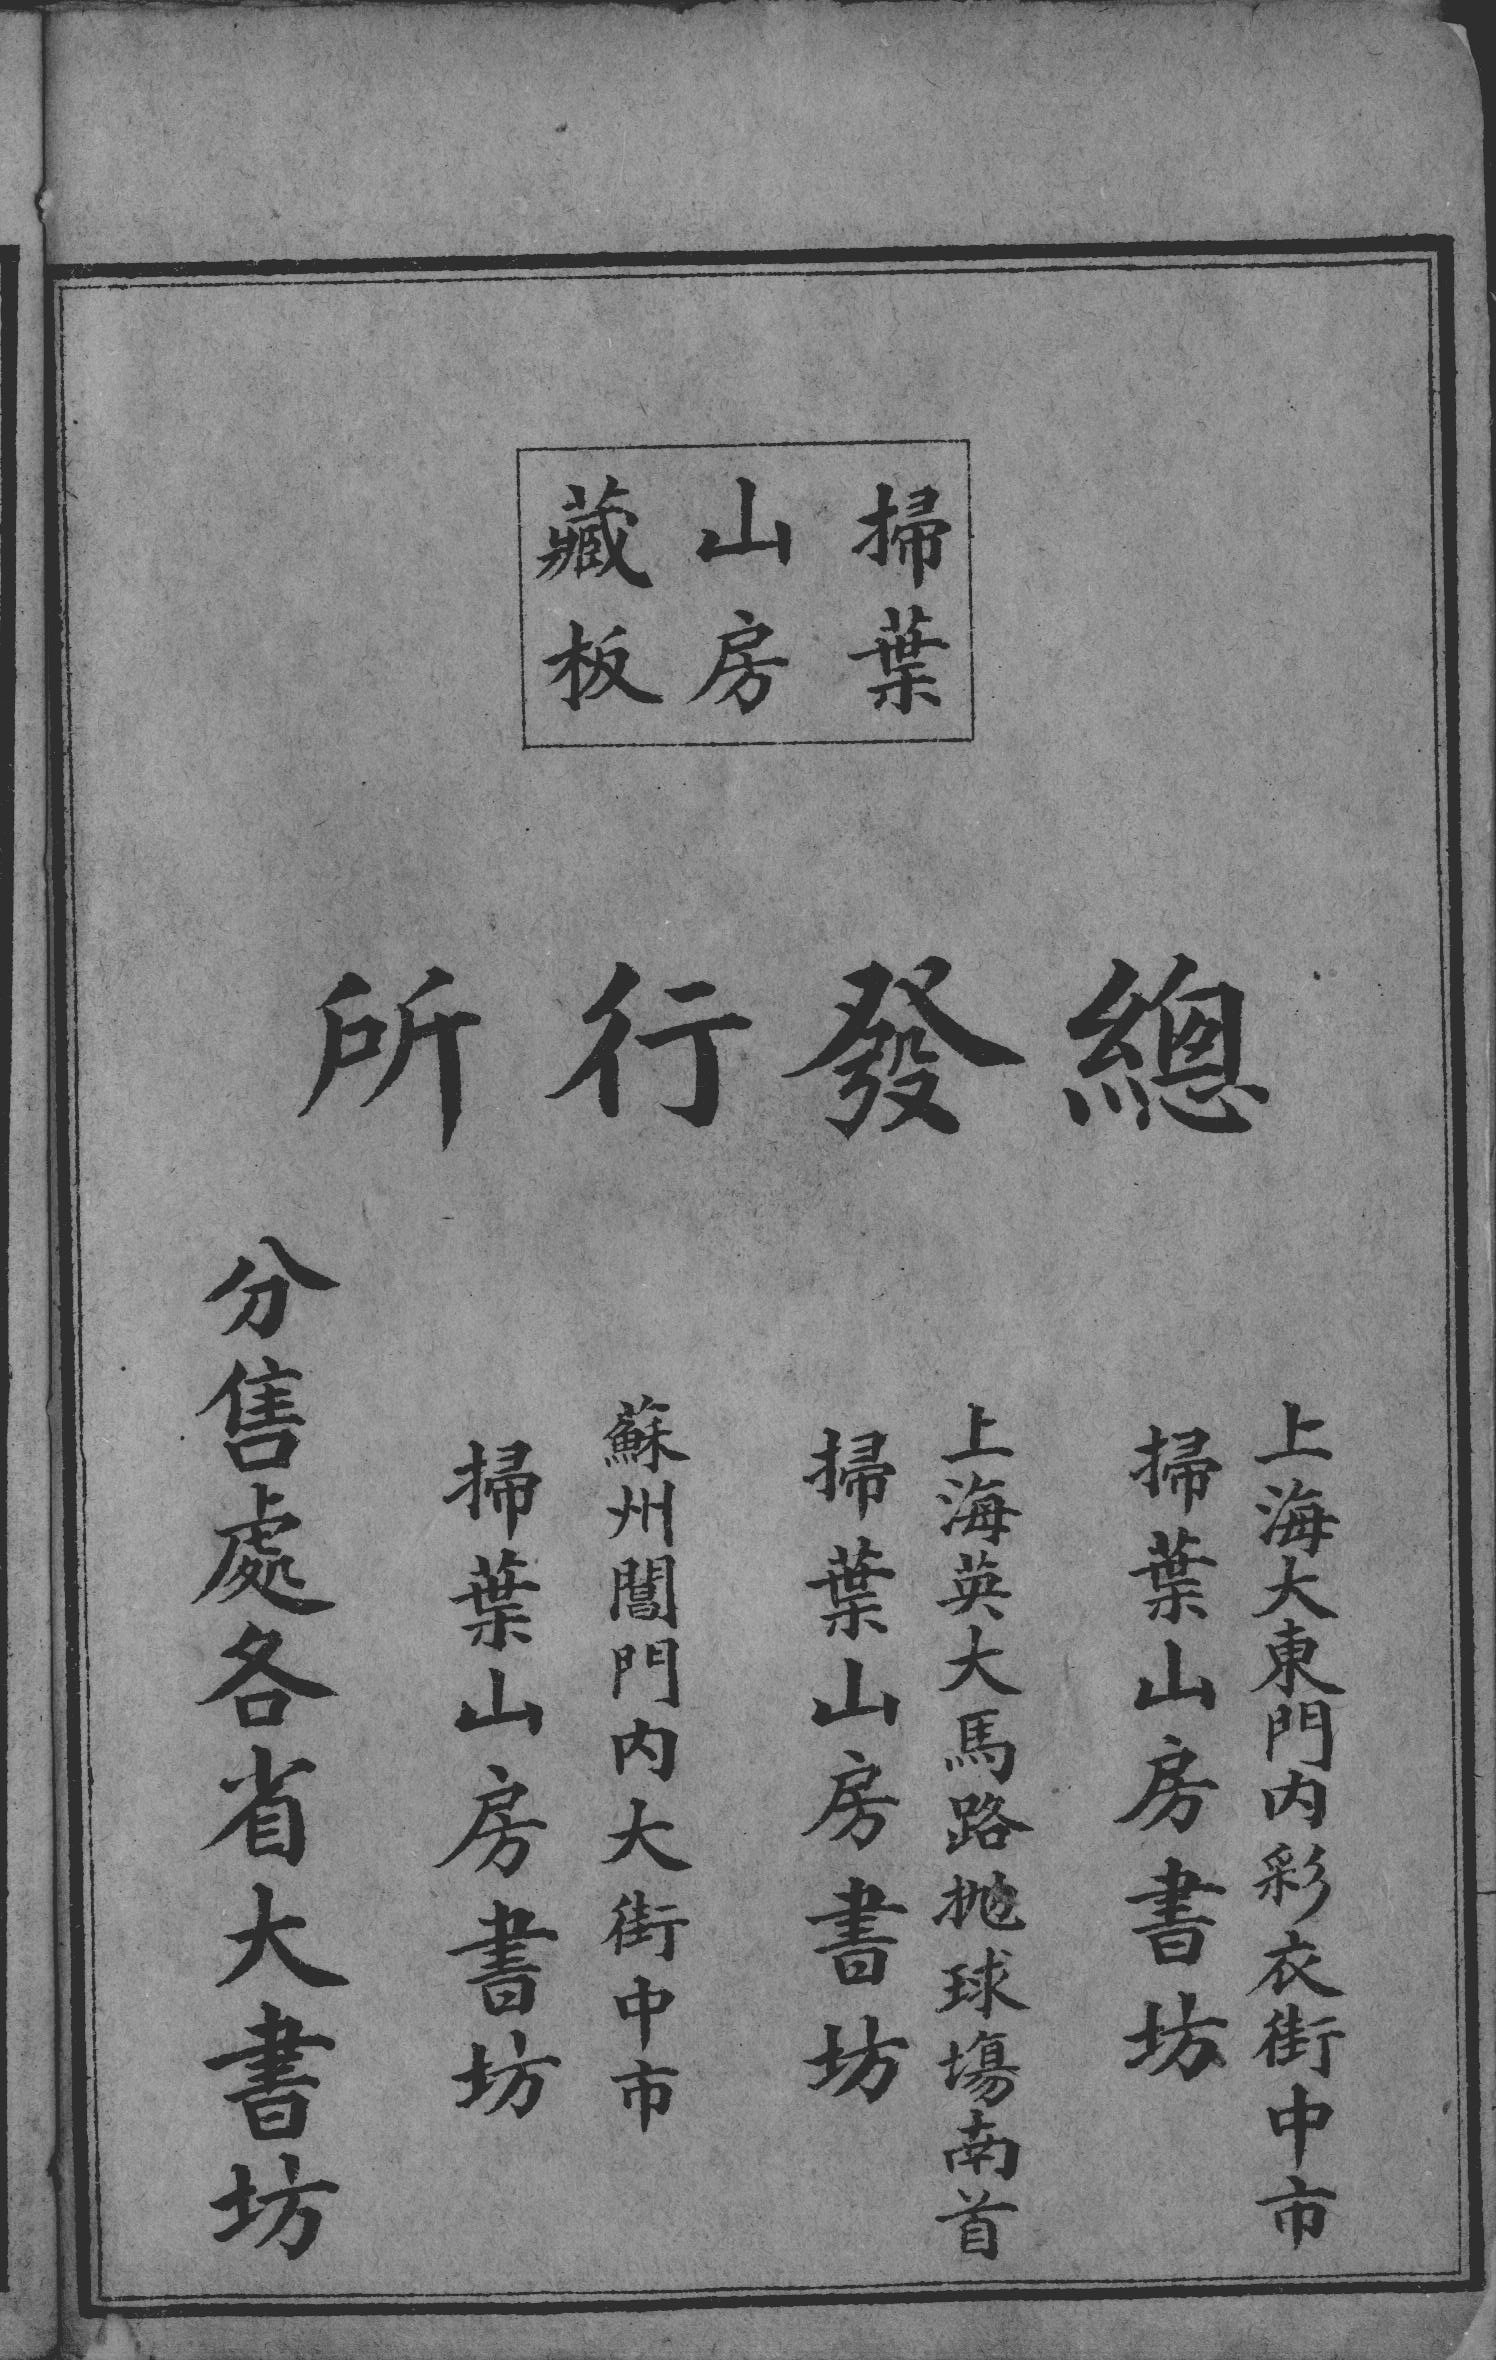 掃葉
山房
藏板
總發行所
上海大東門内彩衣街中市
掃葉山房書坊
上海英大馬路抛球塲南首
掃葉山房書坊
蘇州閶門内大街中市
掃葉山房書坊
分售處各省大書坊